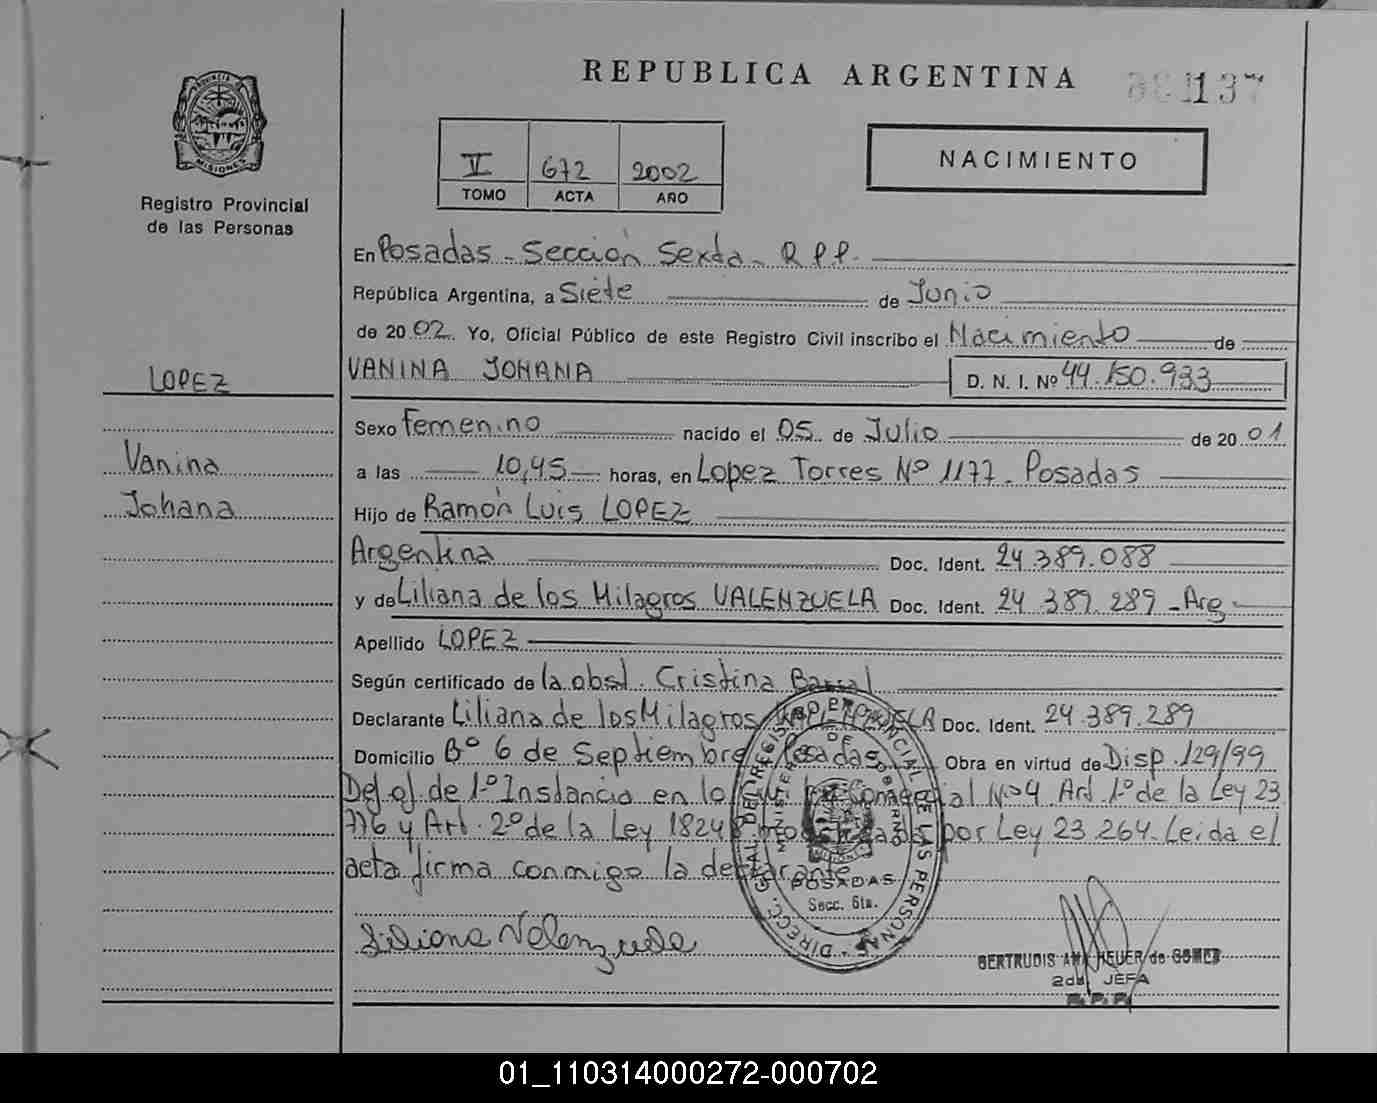 REPUBLICA ARGENTINA
137
PROVINCIA DE MISIONES
Registro Provincial
de las Personas
V 672 2002
TOMO ACTA AÑO
NACIMIENTO
En Posadas - Sección Sexta - R.P.P.
República Argentina, a Siete de Junio
de 2002. Yo, Oficial Público de este Registro Civil inscribo el Nacimiento de
LOPEZ
VANINA JOHANA D. N. I. Nº 44.150.933
Sexo Femenino nacido el 05 de Julio de 2001
Vanina
a las 10,45 horas, en Lopez Torres Nº 1177 - Posadas
Johana
Hijo de Ramón Luis LOPEZ
Argentina Doc. Ident. 24.389.088
y de Liliana de los Milagros VALENZUELA Doc. Ident. 24.389.289 - Arg -
Apellido LOPEZ
Según certificado de la obst. Cristina
Declarante Liliana de los Milagros VALENZUELA Doc. Ident. 24.389.289
Domicilio Bº 6 de Septiembre Posadas Obra en virtud de Disp. 129/99
Def. of. de 1º Instancia en lo Comercial Nº 4 Art. 1º de la Ley 23
776 y Art. 2º de la Ley 18248 por Ley 23.264. Leida el
acta firma conmigo la declarante
DIRECC. GRAL. DEL REGISTRO PROVINCIAL DE LAS PERSONAS
MINISTERIO DE GOBIERNO
POSADAS
Secc. 6ta.
Liliana Valenzuela
GERTRUDIS ANA HEUER de GOMEZ
2da JEFA
R.P.P.
01_110314000272-000702